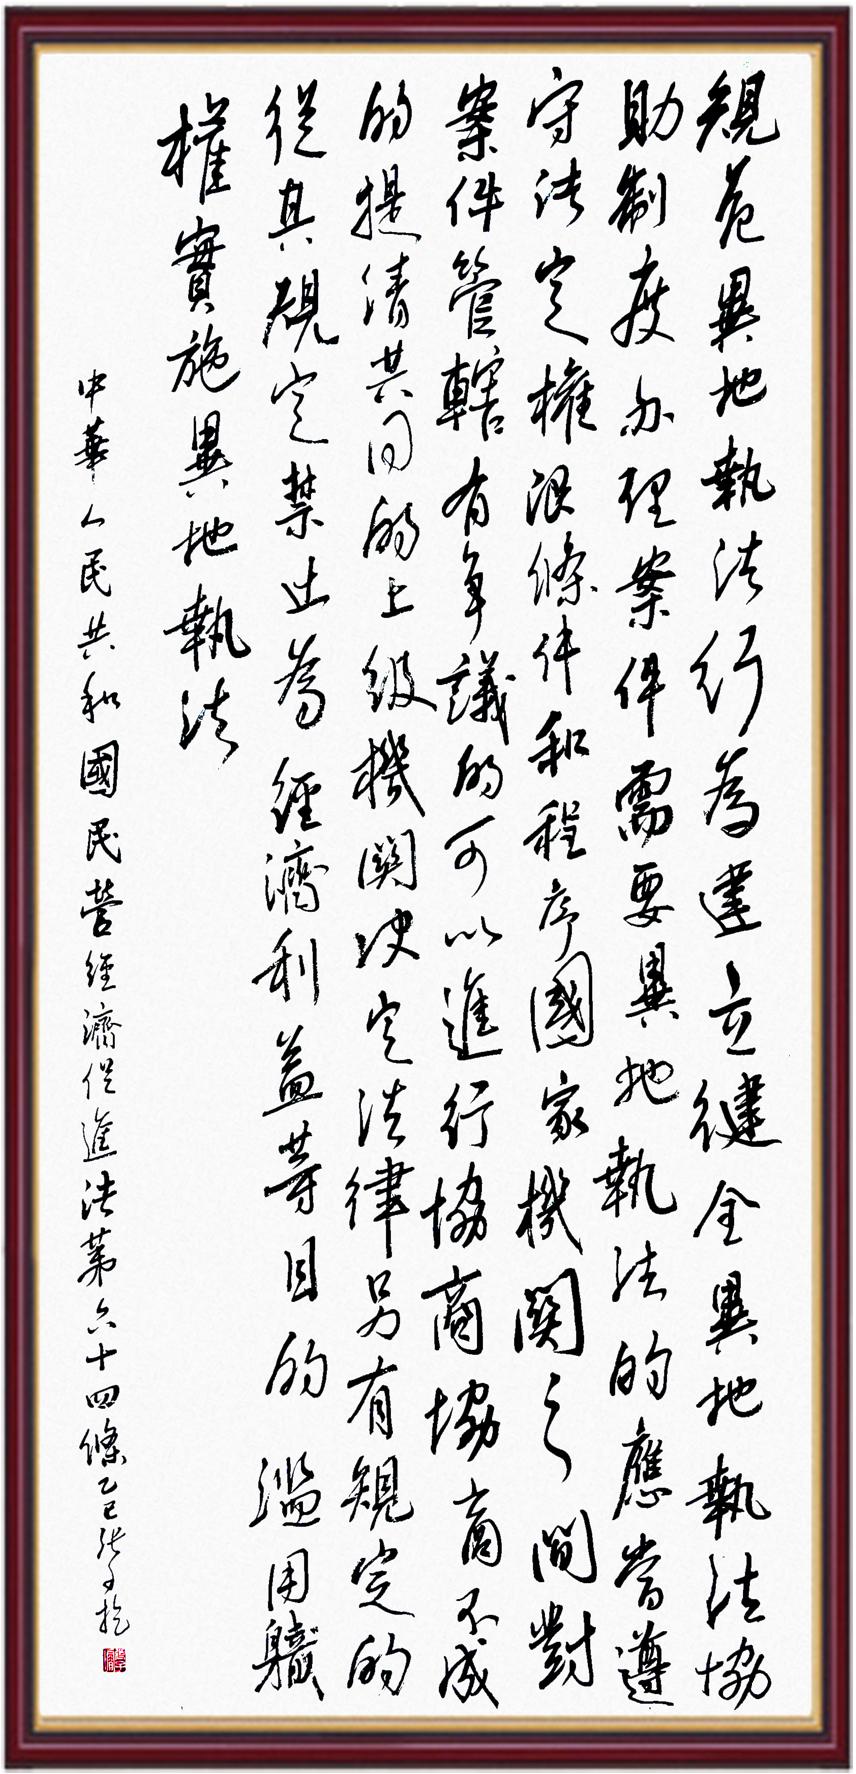 規范異地執法行為建立健全異地執法協
助制度办理案件需要異地執法的應當遵
守法定權限條件和程序國家機關之間對
案件管轄有爭議的可以進行協商協商不成
的提請共同的上級機關決定法律另有規定的
從其規定禁止為經濟利益等目的濫用職
權實施異地執法
中華人民共和國民營經濟促進法第六十四條乙巳